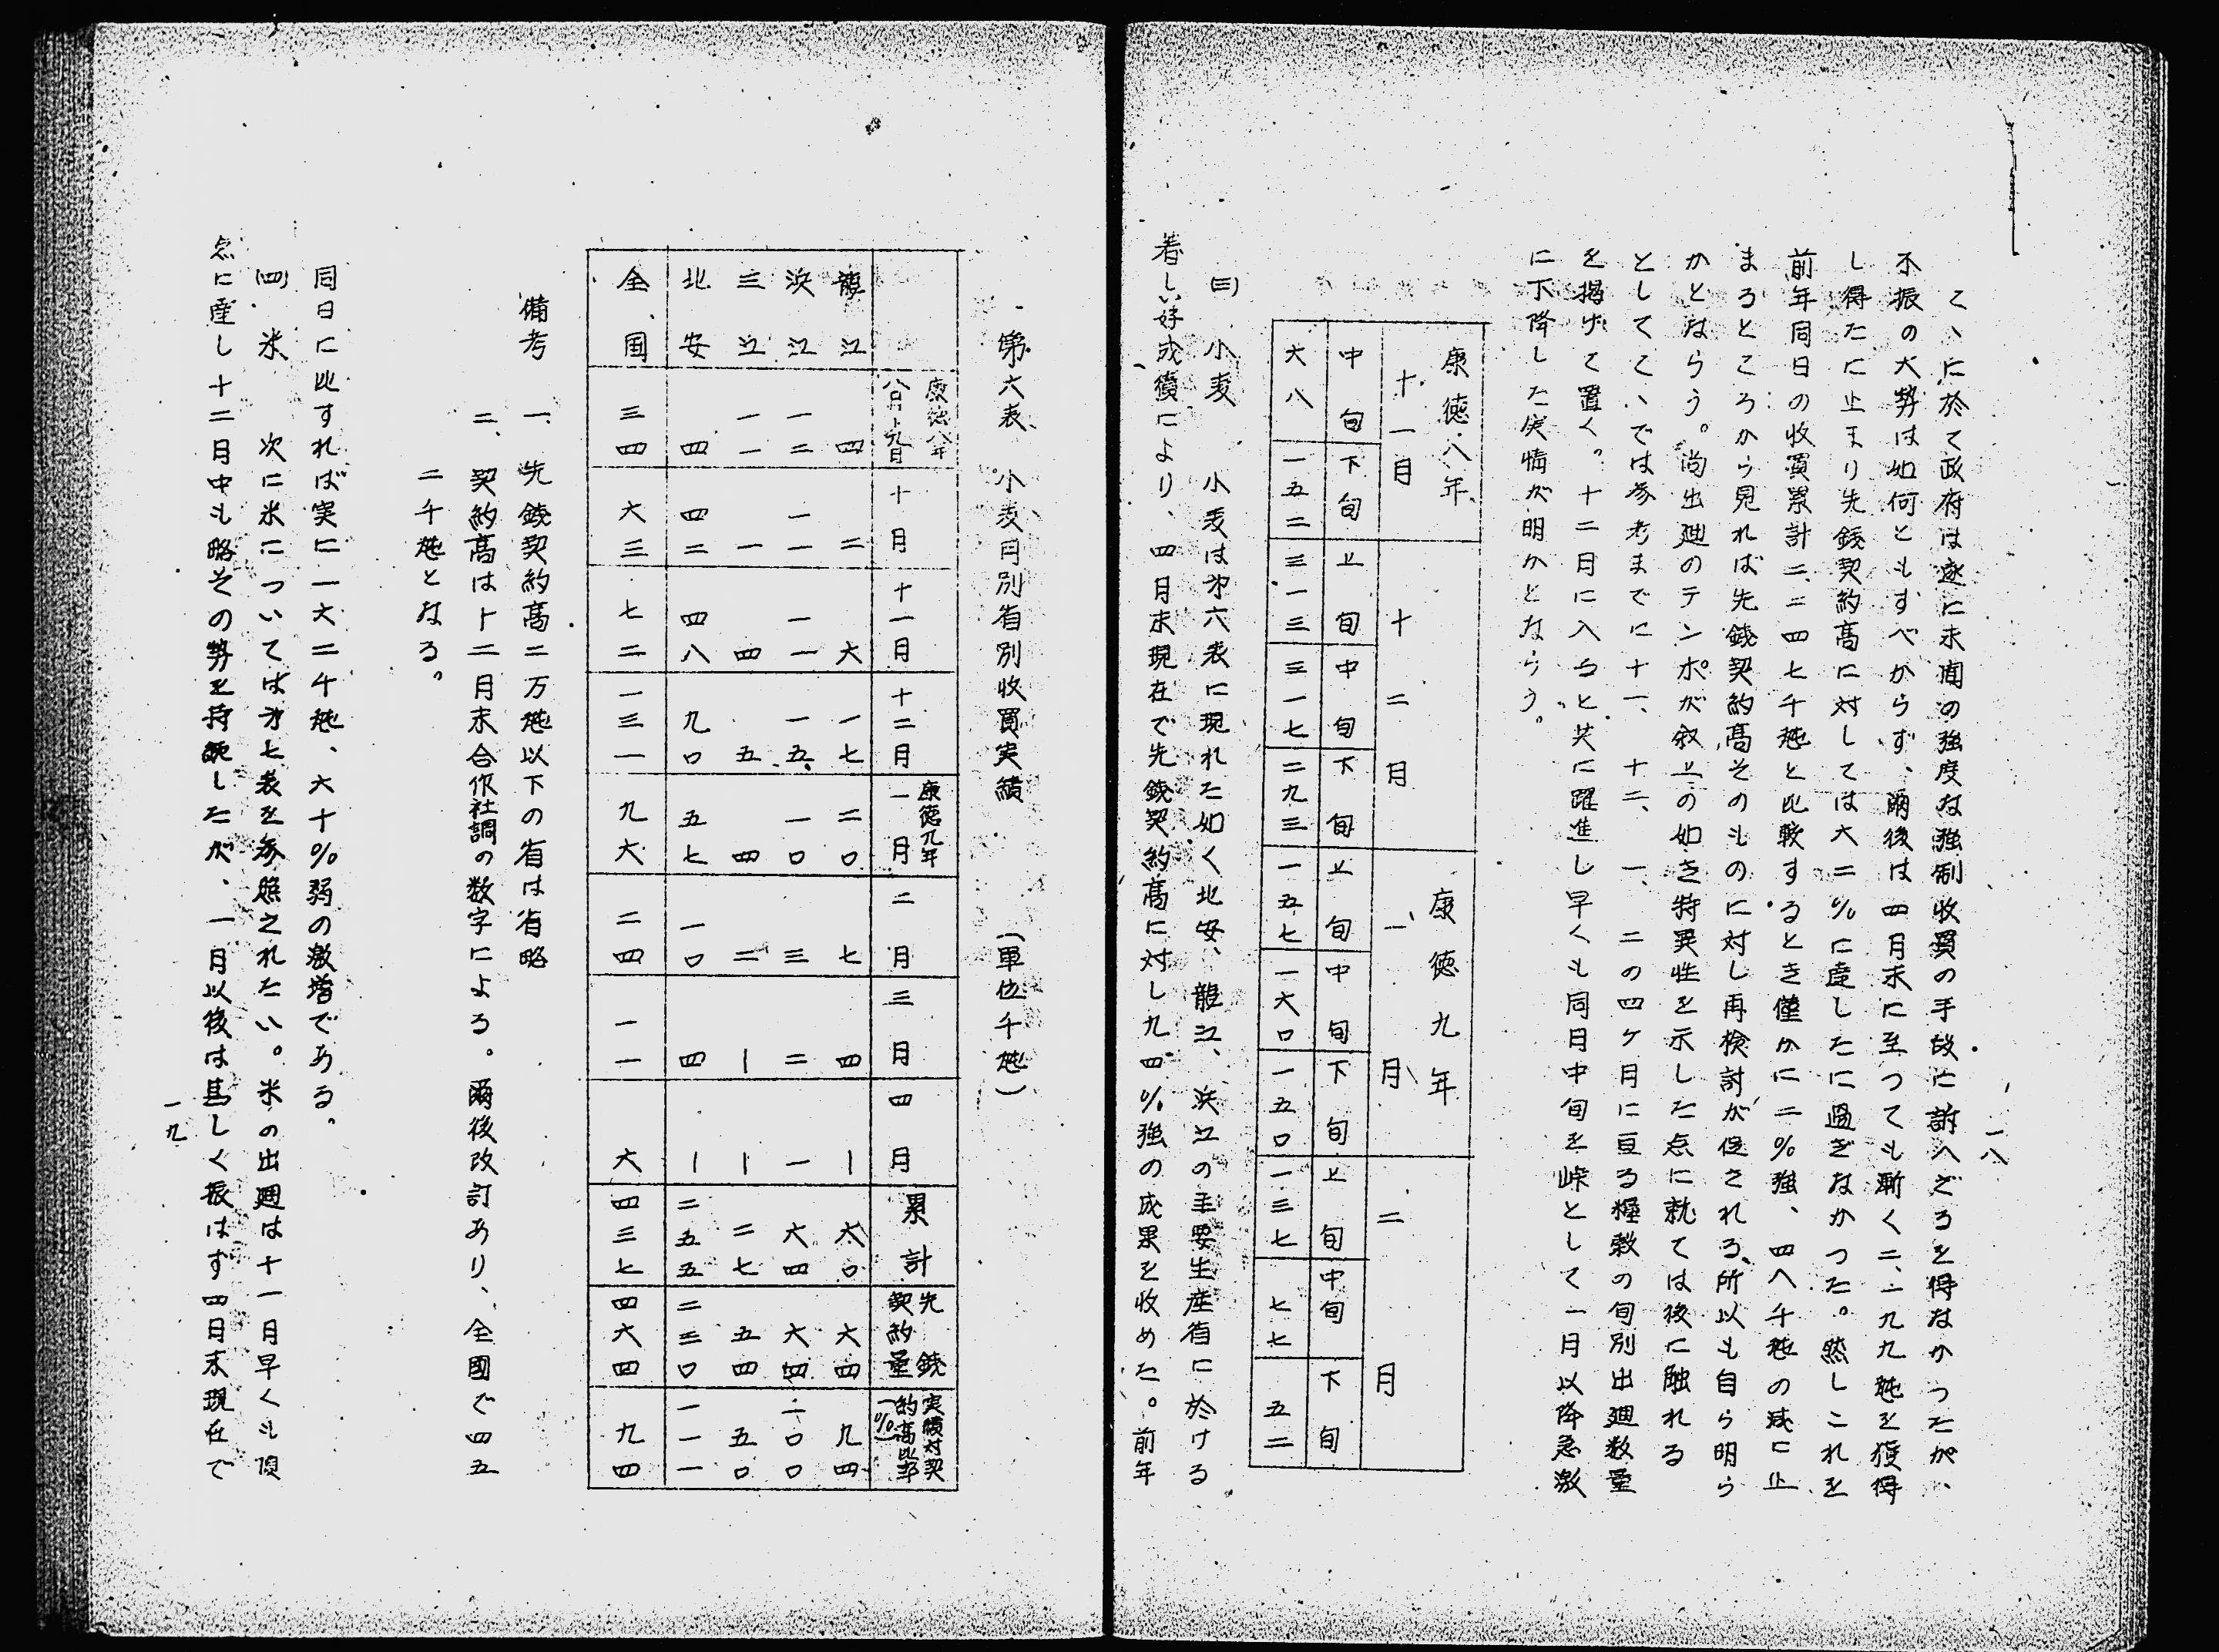 一八
こゝに於て政府は遂に末間の強度な強制收買の手段に訴へざるを得なかつたが、
不振の大勢は如何ともすべからず、爾後は四月末に至つても漸く二、一九九瓲を獲得
し得たに止まり先銭契約高に対しては六二％に達したに過ぎなかつた。然しこれを
前年同日の收買累計二、二四七千瓲と比較するとき僅かに二％強、四八千瓲の減に止
まるところから見れば先銭契約高そのものに対し再検討が促される所以も自ら明ら
かとならう。尚出廻のテンポが叙上の如き特異性を示した点に就ては後に触れる
としてこゝでは参考までに十一、十二、一、二の四ケ月に亘る糧穀の旬別出廻数量
を掲げて置く。十二月に入ると共に躍進し早くも同月中旬を峠として一月以降急激
に下降した実情が明かとならう。
康徳八年 康徳九年
十一月 十二月 一月 二月
中旬 下旬 上旬 中旬 下旬 上旬 中旬 下旬 上旬 中旬 下旬
六八 一五二 三一三 三一七 二九三 一五七 一六〇 一五〇 一三七 七七 五二
(三) 小麦 小麦は才六表に現れた如く北安、龍江、浜江の主要生産省に於ける
着しい好成績により、四月末現在で先銭契約高に対し九四％強の成果を收めた。前年
第六表 小麦月別省別收買実績 (單位千瓲)
康徳八年八月–九月 十月 十一月 十二月 康徳九年一月 二月 三月 四月 累計 先銭契約量 実績対契約高比率(％)
龍江 四 二 六 一七 二〇 七 四 ｜ 六〇 六四 九四
浜江 一二 一一 一一 一五 一〇 三 二 一 六四 六四 一〇〇
三江 一一 一 四 五 四 二 ｜ ｜ 二七 五四 五〇
北安 四 四二 四八 九〇 五七 一〇 四 ｜ 二五五 二三〇 一一一
全国 三四 六三 七二 一三一 九六 二四 一一 六 四三七 四六四 九四
備考 一、先銭契約高二万瓲以下の省は省略
二、契約高は十二月末合作社調の数字による。爾後改訂あり、全國で四五
二千瓲となる。
同日に比すれば実に一六二千瓲、六十％弱の激増である。
(四) 米 次に米については才七表を参照されたい。米の出廻は十一月早くも頂
点に達し十二月中も略その勢を持続したが、一月以後は甚しく振はず四月末現在で
一九